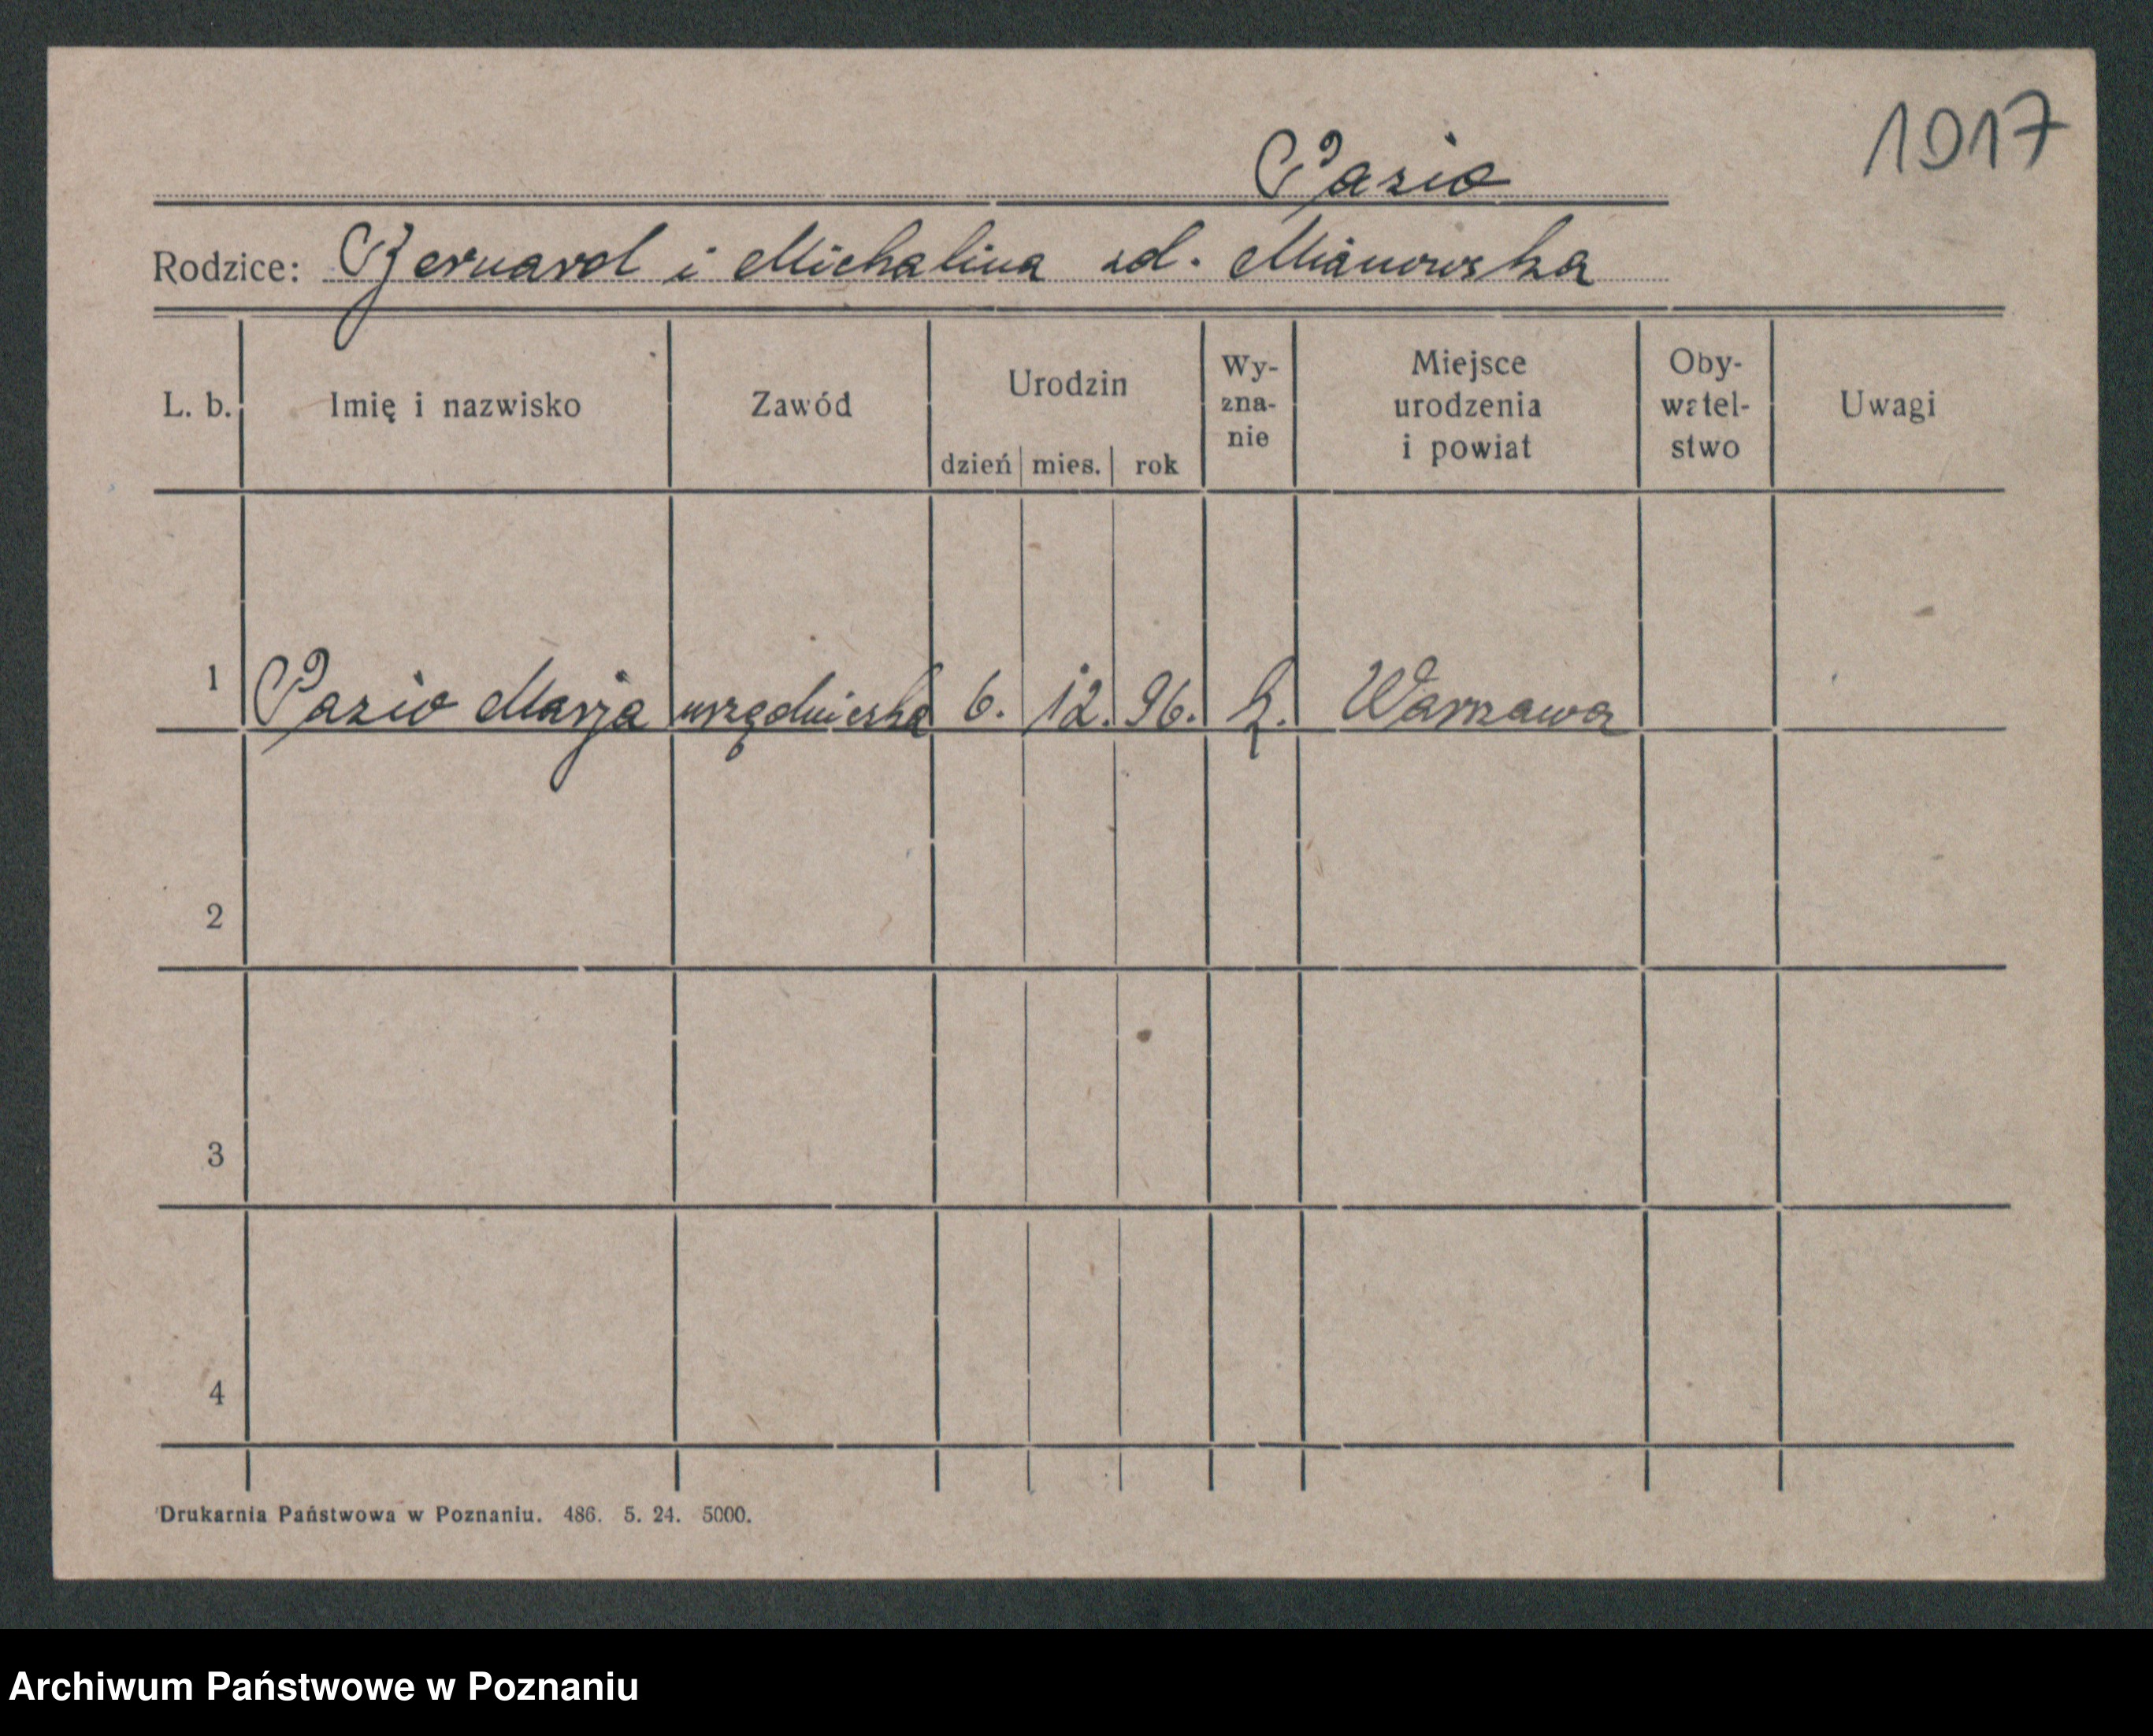 1017
Pazio
Rodzice: Bernard i Michalina zd. Mianowska
L. b. Imię i nazwisko Zawód Urodzin dzień mies. rok Wy-zna-nie Miejsce urodzenia i powiat Oby-watel-stwo Uwagi
1 Pazio Marja urzędniczka 6. 12. 96. k. Warszawa
2
3
4
Drukarnia Państwowa w Poznaniu. 486. 5. 24. 5000.
Archiwum Państwowe w Poznaniu